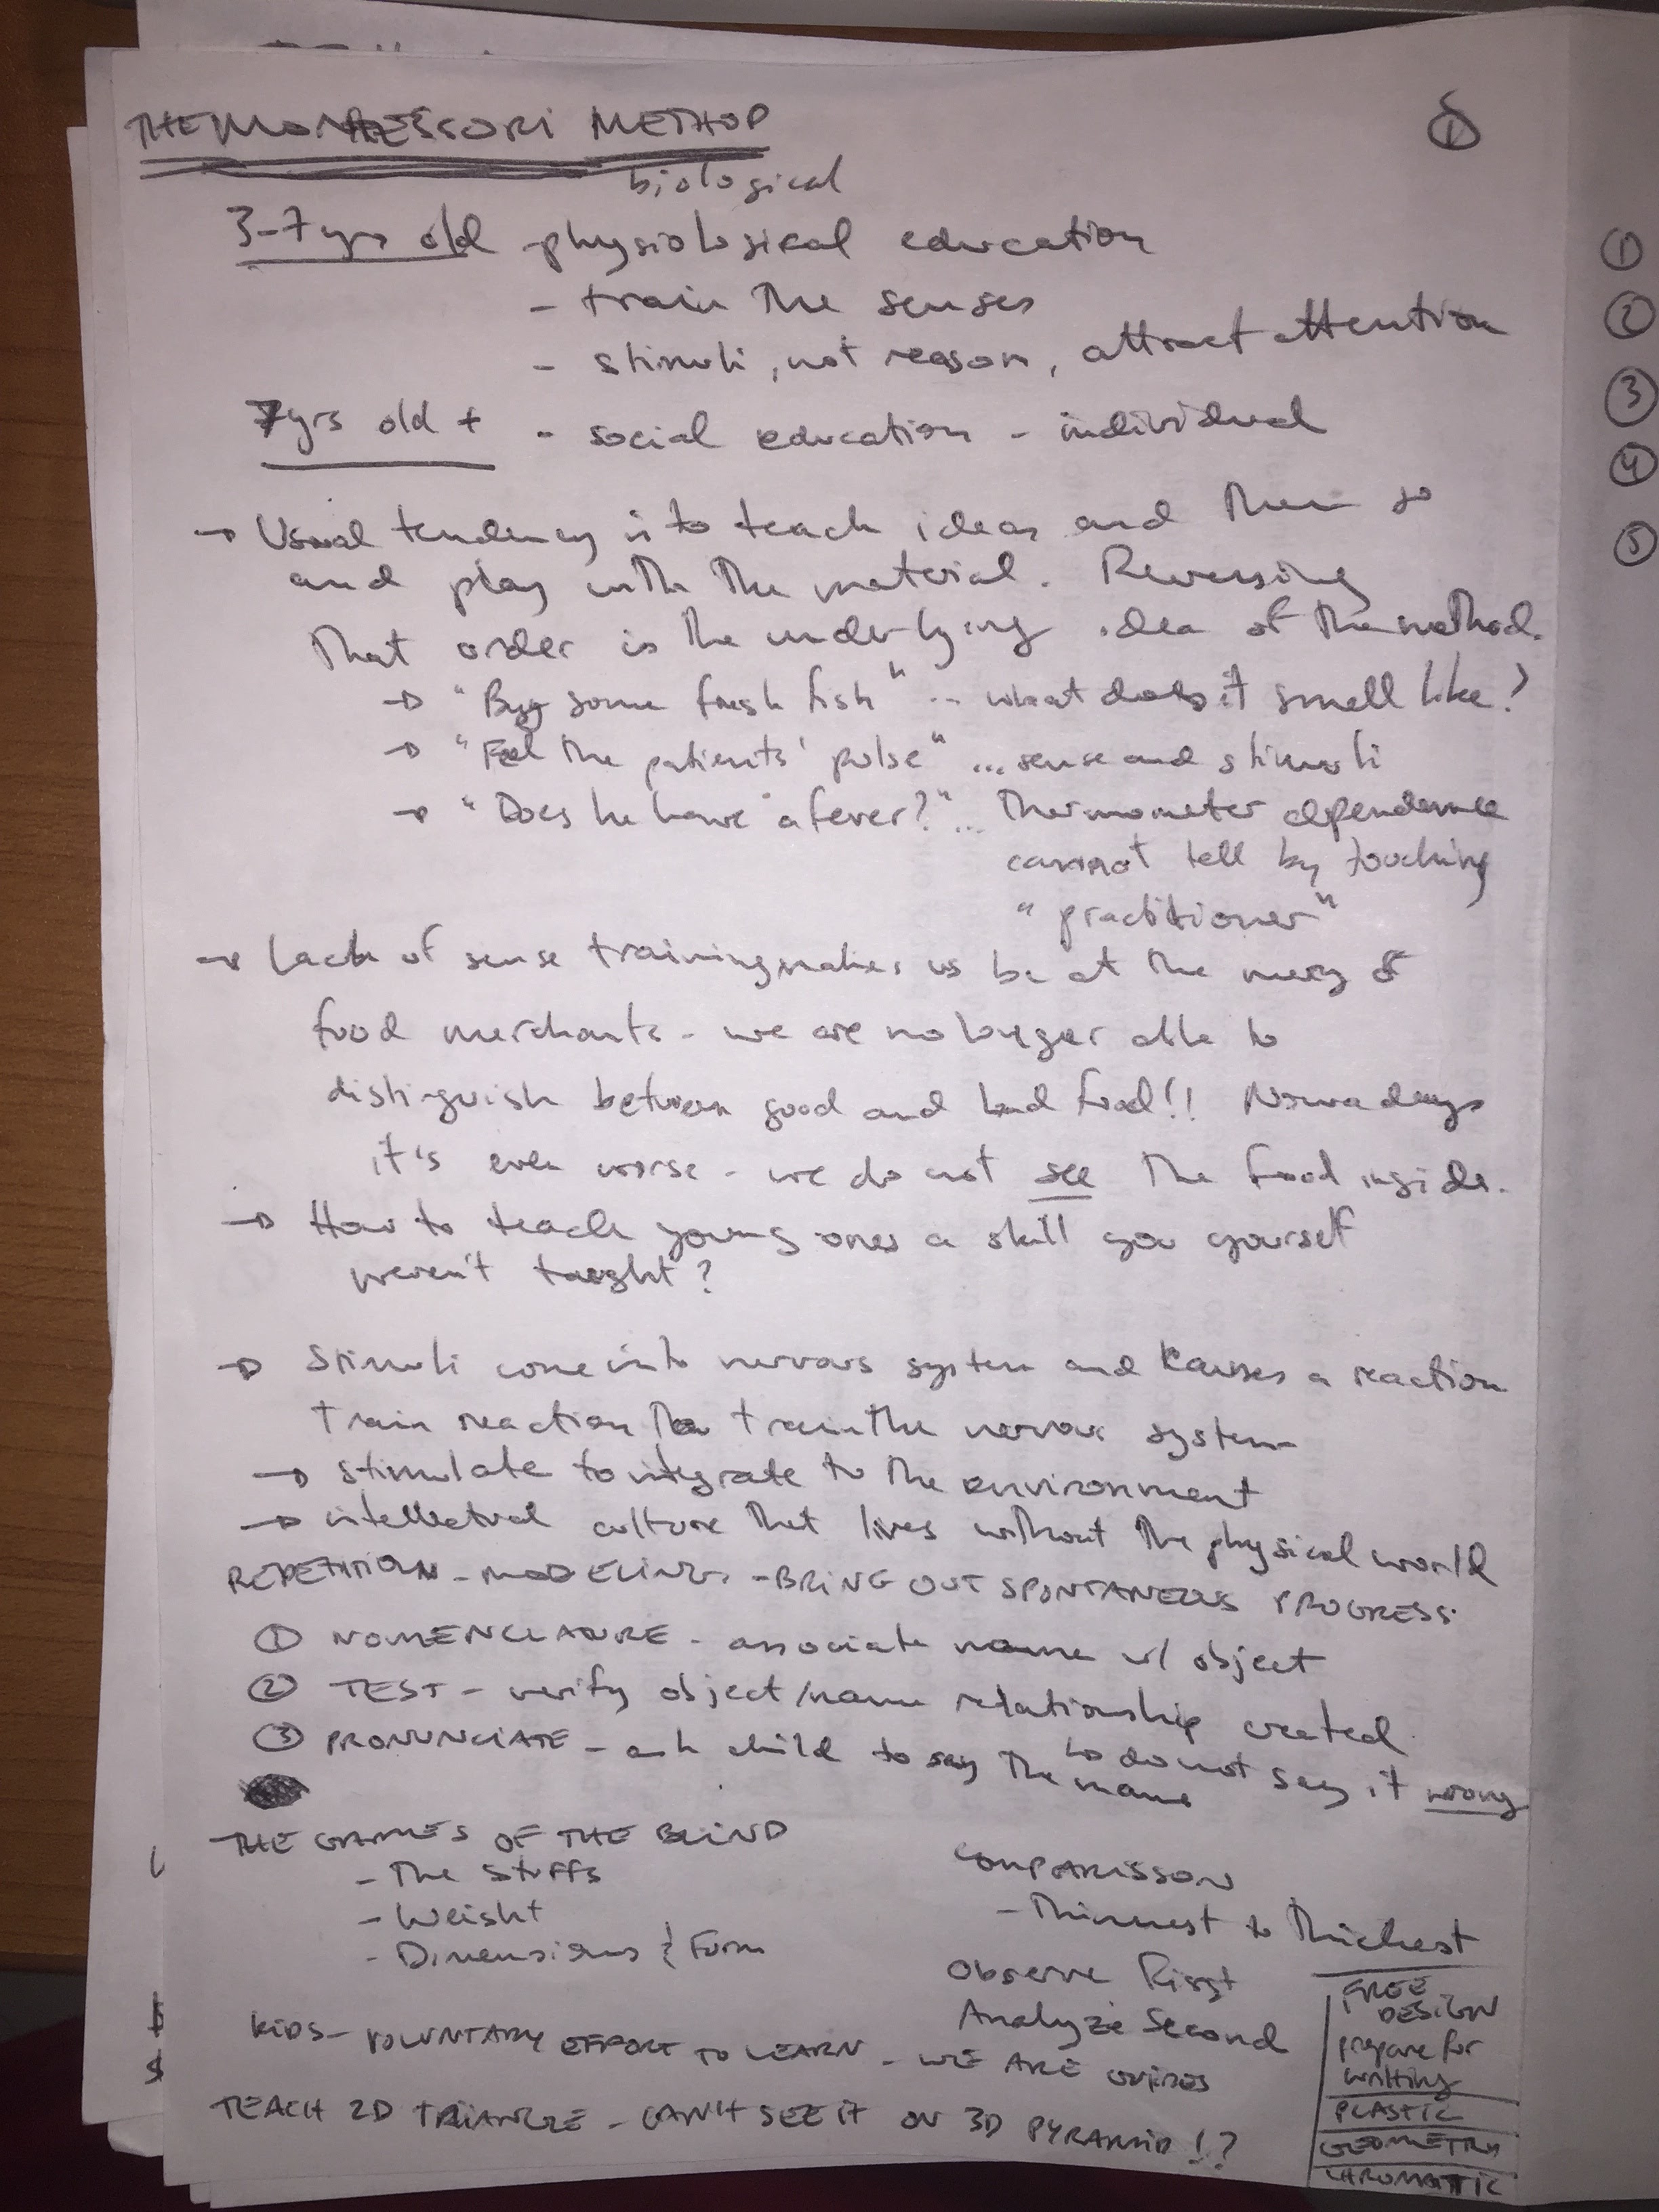 THE MONTESSORI METHOD
①
biological
3-7 yrs old - physiological education
- train the senses
- stimuli, not reason, attract attention
7yrs old + - social education - individual
→ Usual tendency is to teach ideas and then go
and play with the material. Reversing
that order is the underlying idea of the method.
→ "Buy some fresh fish" .. what does it smell like?
→ "Feel the patients' pulse" ... sense and stimuli
→ "Does he have a fever?" ... thermometer dependence
cannot tell by touching
"practitioner"
→ Lack of sense training makes us be at the mercy of
food merchants - we are no longer able to
distinguish between good and bad food!! Nowadays
it's even worse - we do not see the food inside.
→ How to teach young ones a skill you yourself
weren't taught?
→ Stimuli come into nervous system and causes a reaction
train reaction to train the nervous system
→ stimulate to integrate to the environment
→ intellectual culture that lives without the physical world
REPETITION - MODELING - BRING OUT SPONTANEOUS PROGRESS.
① NOMENCLATURE - associate name w/ object
② TEST - verify object/name relationship created.
③ PRONUNCIATE - ask child to say the name
↳ do not say it wrong
THE GAMES OF THE BLIND
- The Stuffs
- Weight
- Dimensions & Form
COMPARISSON
- Thinnest to Thickest
Observe First
Analyze Second
KIDS - VOLUNTARY EFFORT TO LEARN - WE ARE GUIDES
TEACH 2D TRIANGLE - CAN'T SEE IT ON 3D PYRAMID!?
FREE
DESIGN
prepare for
writing
PLASTIC
GEOMETRY
CHROMATIC
①
②
③
④
⑤